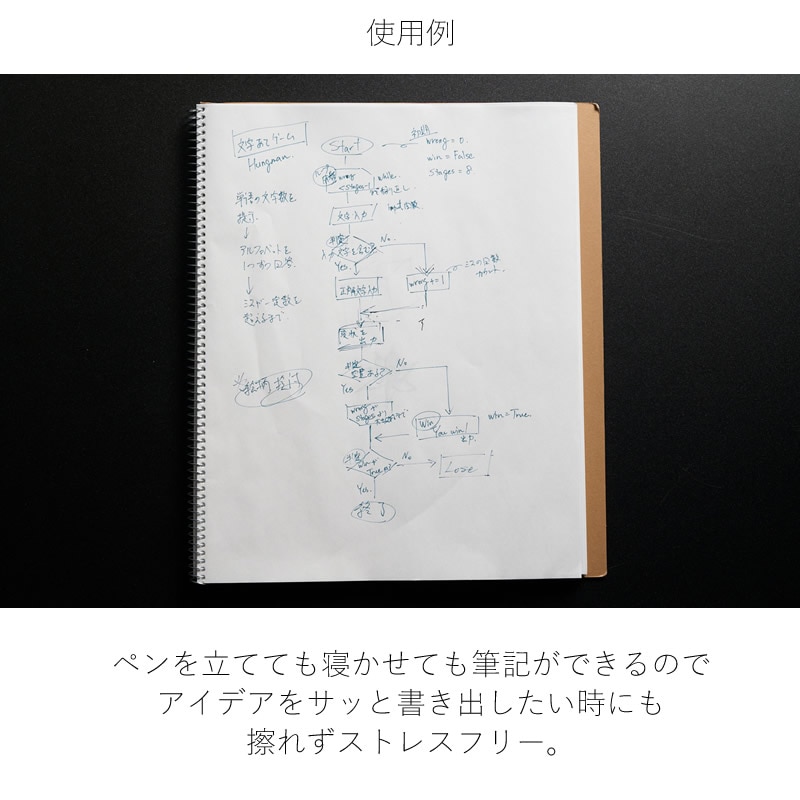 使用例
文字あてゲーム
Hungman.
単語の文字数を
提示.
アルファベットを
1つずつ回答
ミスが一定数を
超えるまで
Start
wrong = 0.
win = False
Stages = 8
wrong
while
文字入力
判定
No.
Yes.
正解文字入力
wrong += 1
ミスの回数
カウント.
現状を
出力
判定
No
Yes
wrong +
Win
You win!
出力.
win = True
判定
win +
No
Lose
Yes.
終了
ペンを立てても寝かせても筆記ができるので
アイデアをサッと書き出したい時にも
擦れずストレスフリー。